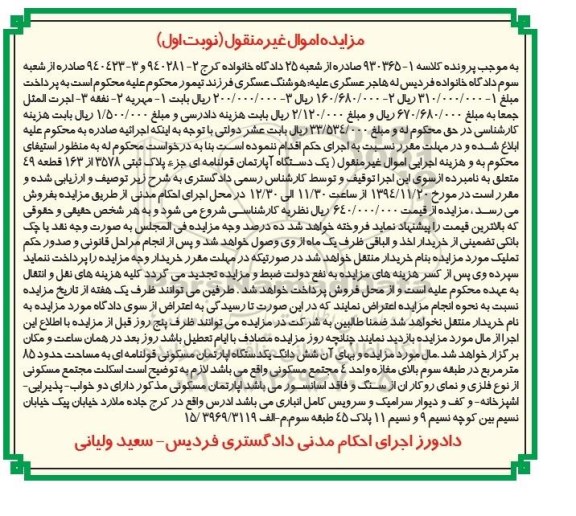 مزایده اموال غیر منقول (نوبت اول)
به موجب پرونده کلاسه ۱-۹۳۰۳۶۵ صادره از شعبه ۲۵ دادگاه خانواده کرج ۲-۹۴۰۲۸۱ و ۳-۹۴۰۴۲۳ صادره از شعبه
سوم دادگاه خانواده فردیس له هاجر عسگری علیه: هوشنگ عسگری فرزند تیمور محکوم علیه محکوم است به پرداخت
مبلغ ۱-۳۱۰/۰۰۰/۰۰۰ ریال ۲-۱۶۰/۶۸۰/۰۰۰ ریال ۳-۲۰۰/۰۰۰/۰۰۰ ریال بابت ۱-مهریه ۲-نفقه ۳-اجرت المثل
جمعا به مبلغ ۶۷۰/۶۸۰/۰۰۰ ریال و مبلغ ۲/۱۲۰/۰۰۰ ریال بابت هزینه دادرسی و مبلغ ۱/۵۰۰/۰۰۰ ریال بابت هزینه
کارشناسی در حق محکوم له و مبلغ ۳۳/۵۳۴/۰۰۰ ریال بابت عشر دولتی با توجه به اینکه اجرائیه صادره به محکوم علیه
ابلاغ شده و در مهلت مقرر نسبت به اجرای حکم اقدام ننموده است بنا به درخواست محکوم له به منظور استیفای
محکوم به و هزینه اجرایی اموال غیر منقول ( یک دستگاه آپارتمان قولنامه ای جزء پلاک ثبتی ۳۵۷۸ از ۱۶۳ قطعه ۴۹
متعلق به نامبرده از سوی این اجرا توقیف و توسط کارشناس رسمی دادگستری به شرح زیر توصیف و ارزیابی شده و
مقرر است در مورخ ۱۳۹۴/۱۱/۲۰ از ساعت ۱۱/۳۰ الی ۱۲/۳۰ در محل اجرای احکام مدنی از طریق مزایده بفروش
می رسد ، مزایده از قیمت ۶۴۰/۰۰۰/۰۰۰ ریال نظریه کارشناسی شروع می شود و به هر شخص حقیقی و حقوقی
که بالاترین قیمت را پیشنهاد نماید فروخته خواهد شد ده درصد وجه مزایده فی المجلس به صورت وجه نقد یا چک
بانکی تضمینی از خریدار اخذ و الباقی ظرف یک ماه از وی وصول خواهد شد و پس از انجام مراحل قانونی و صدور حکم
تملیک مورد مزایده بنام خریدار منتقل خواهد شد در صورتیکه در مهلت مقرر خریدار وجه مزایده را پرداخت ننماید
سپرده وی پس از کسر هزینه های مزایده به نفع دولت ضبط و مزایده تجدید می گردد کلیه هزینه های نقل و انتقال
به عهده محکوم علیه است و از محل فروش پرداخت خواهد شد طرفین می توانند ظرف یک هفته از تاریخ مزایده
نسبت به نحوه انجام مزایده اعتراض نمایند که در این صورت تا رسیدگی به اعتراض از سوی دادگاه مورد مزایده به
نام خریدار منتقل نخواهد شد ضمنا طالبین به شرکت در مزایده می توانند ظرف پنج روز قبل از مزایده با اطلاع این
اجرا از مال مورد مزایده بازدید نمایند چنانچه روز مزایده مصادف با ایام تعطیل باشد روز بعد در همان ساعت و مکان
برگزار خواهد شد .مال مورد مزایده و بهای آن شش دانگ یکدستگاه آپارتمان مسکونی قولنامه ای به مساحت حدود ۸۵
مترمربع در طبقه سوم بالای مغازه واحد ۴ مجتمع مسکونی واقع می باشد لازم به توضیح است اسکلت مجتمع مسکونی
از نوع فلزی و نمای رو کار ان از سنگ و فاقد اسانسور می باشد اپارتمان مسکونی مذکور دارای دو خواب- پذیرایی-
اشپزخانه- و کف و دیوار سرامیک و سرویس کامل انباری می باشد ادرس واقع در کرج جاده ملارد خیابان پیک خیابان
نسیم بین کوچه نسیم ۹ و نسیم ۱۱ پلاک ۴۵ طبقه سوم.م-الف ۳۹۶۹/۳۱۱۹ /۱۵
دادورز اجرای احکام مدنی دادگستری فردیس- سعید ولیانی